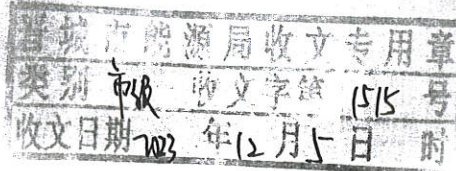 晋城市能源局收文专用章
类别 市级 收文字第 1515 号
收文日期 2023 年 12 月 5 日 时